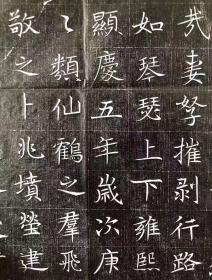 哉妻孥摧剥行路
如琴瑟上下雍熙
顯慶五年歲次庚
〻類仙鶴之羣飛
敬之卜兆墳塋建